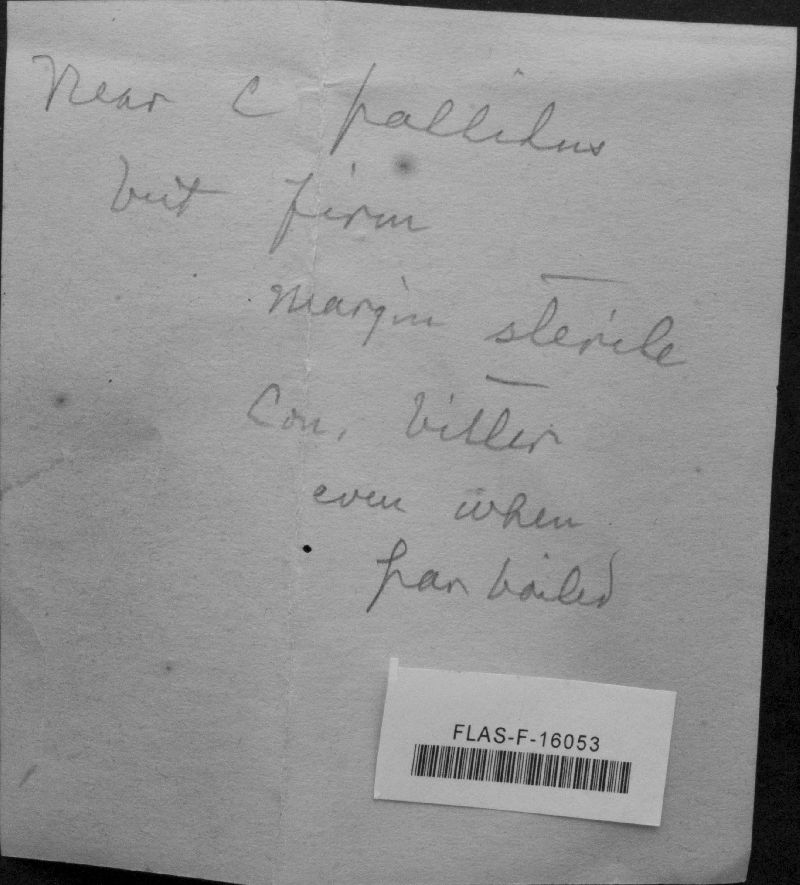 Near C pallidus
but firm
margin sterile
Con, bitter
even when
par boiled
FLAS-F-16053